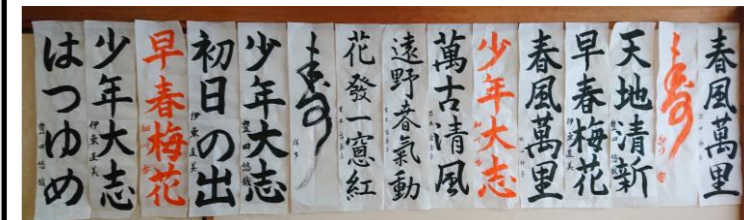 春風萬里
寿
天地清新
早春梅花
春風萬里
少年大志
萬古清風
遠野春氣動
花發一窓紅
寿
少年大志
初日の出
早春梅花
少年大志
はつゆめ